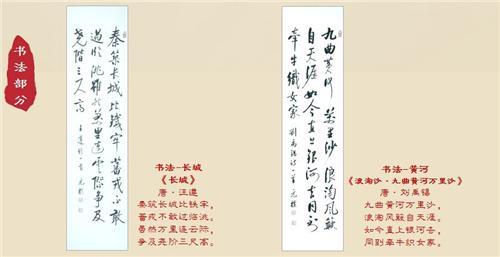 书法部分
秦築长城比鐵牢蕃戎不敢
過临洮雖然萬里连雲際争及
尧階三尺高
书法--长城
《长城》
唐·汪遵
秦筑长城比铁牢，
蕃戎不敢过临洮。
虽然万里连云际，
争及尧阶三尺高。
九曲黄河萬里沙浪淘風簸
自天涯如今直上银河去同到
牵牛織女家 刘禹锡诗一首
书法--黄河
《浪淘沙·九曲黄河万里沙》
唐·刘禹锡
九曲黄河万里沙，
浪淘风簸自天涯。
如今直上银河去，
同到牵牛织女家。